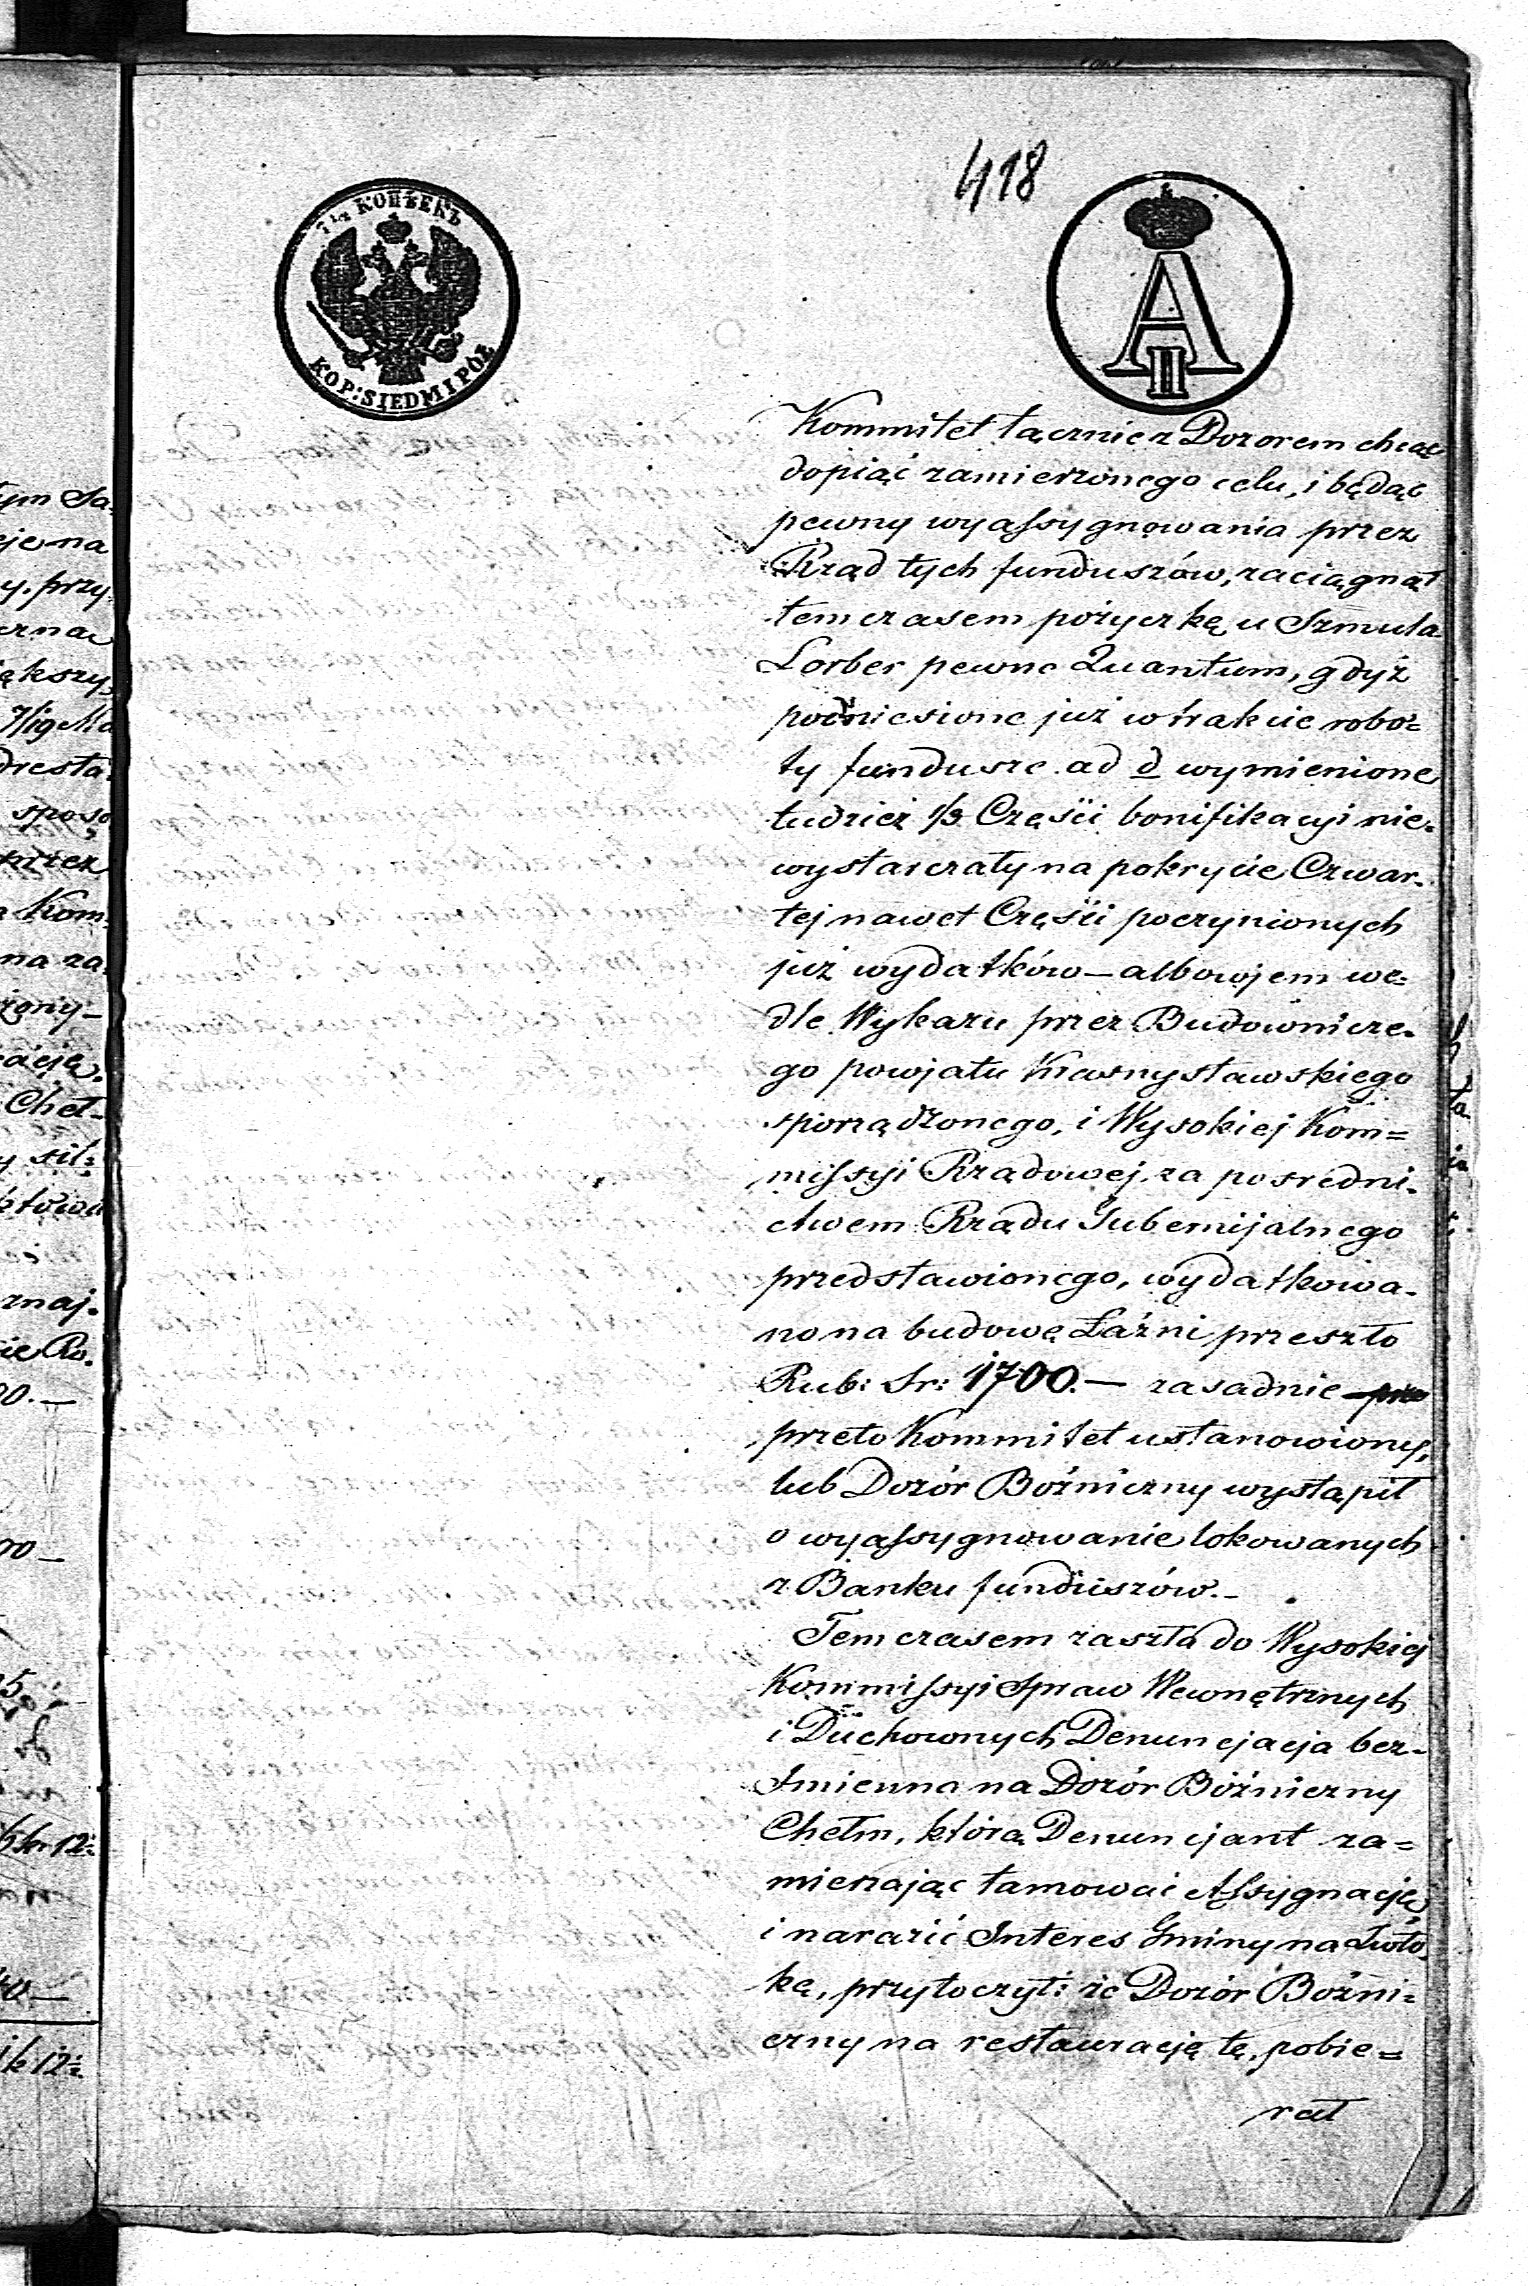 418
7½ КОПѢЕКЪ
KOP: SIEDM I PÓŁ
A II
Kommitet łącznie z Dozorem chcąc
dopiąć zamierzonego celu, i będąc
pewny wyassygnowania przez
Rząd tych funduszów, zaciągnął
temczasem pożyczkę u Szmula
Lorber pewne Quantum, gdyż
podniesione już w trakcie robo=
ty fundusze ad d wymienione
tudzież 1/3 Części bonifikacyi nie=
wystarczały na pokrycie Czwar=
tej nawet Części poczynionych
już wydatków — albowjem we=
dle Wykazu przez Budownicze=
go powjatu Krasnystawskiego
sporządzonego, i Wysokiej Kom=
missyi Rządowej za posredni=
ctwem Rządu Gubernijalnego
przedstawionego, wydatkowa=
no na budowę Łaźni przeszło
Rub: Sr: 1700.— zasadnie prze
przeto Kommitet ustanowiony,
lub Dozór Bóżniczny wystąpił
o wyassygnowanie lokowanych
z Banku funduszów.—
Temczasem zaszła do Wysokiej
Kommissyi Spraw Wewnętrznych
i Duchownych Denuncjacja bez=
Imienna na Dozór Bóżniczny
Chełm, którą Denuncjant za=
mierzając tamować Assygnację
i narazić Interes Gminy na Zwło
kę, przytoczył: że Dozór Bóżni=
czny na restaurację tę, pobie=
rał